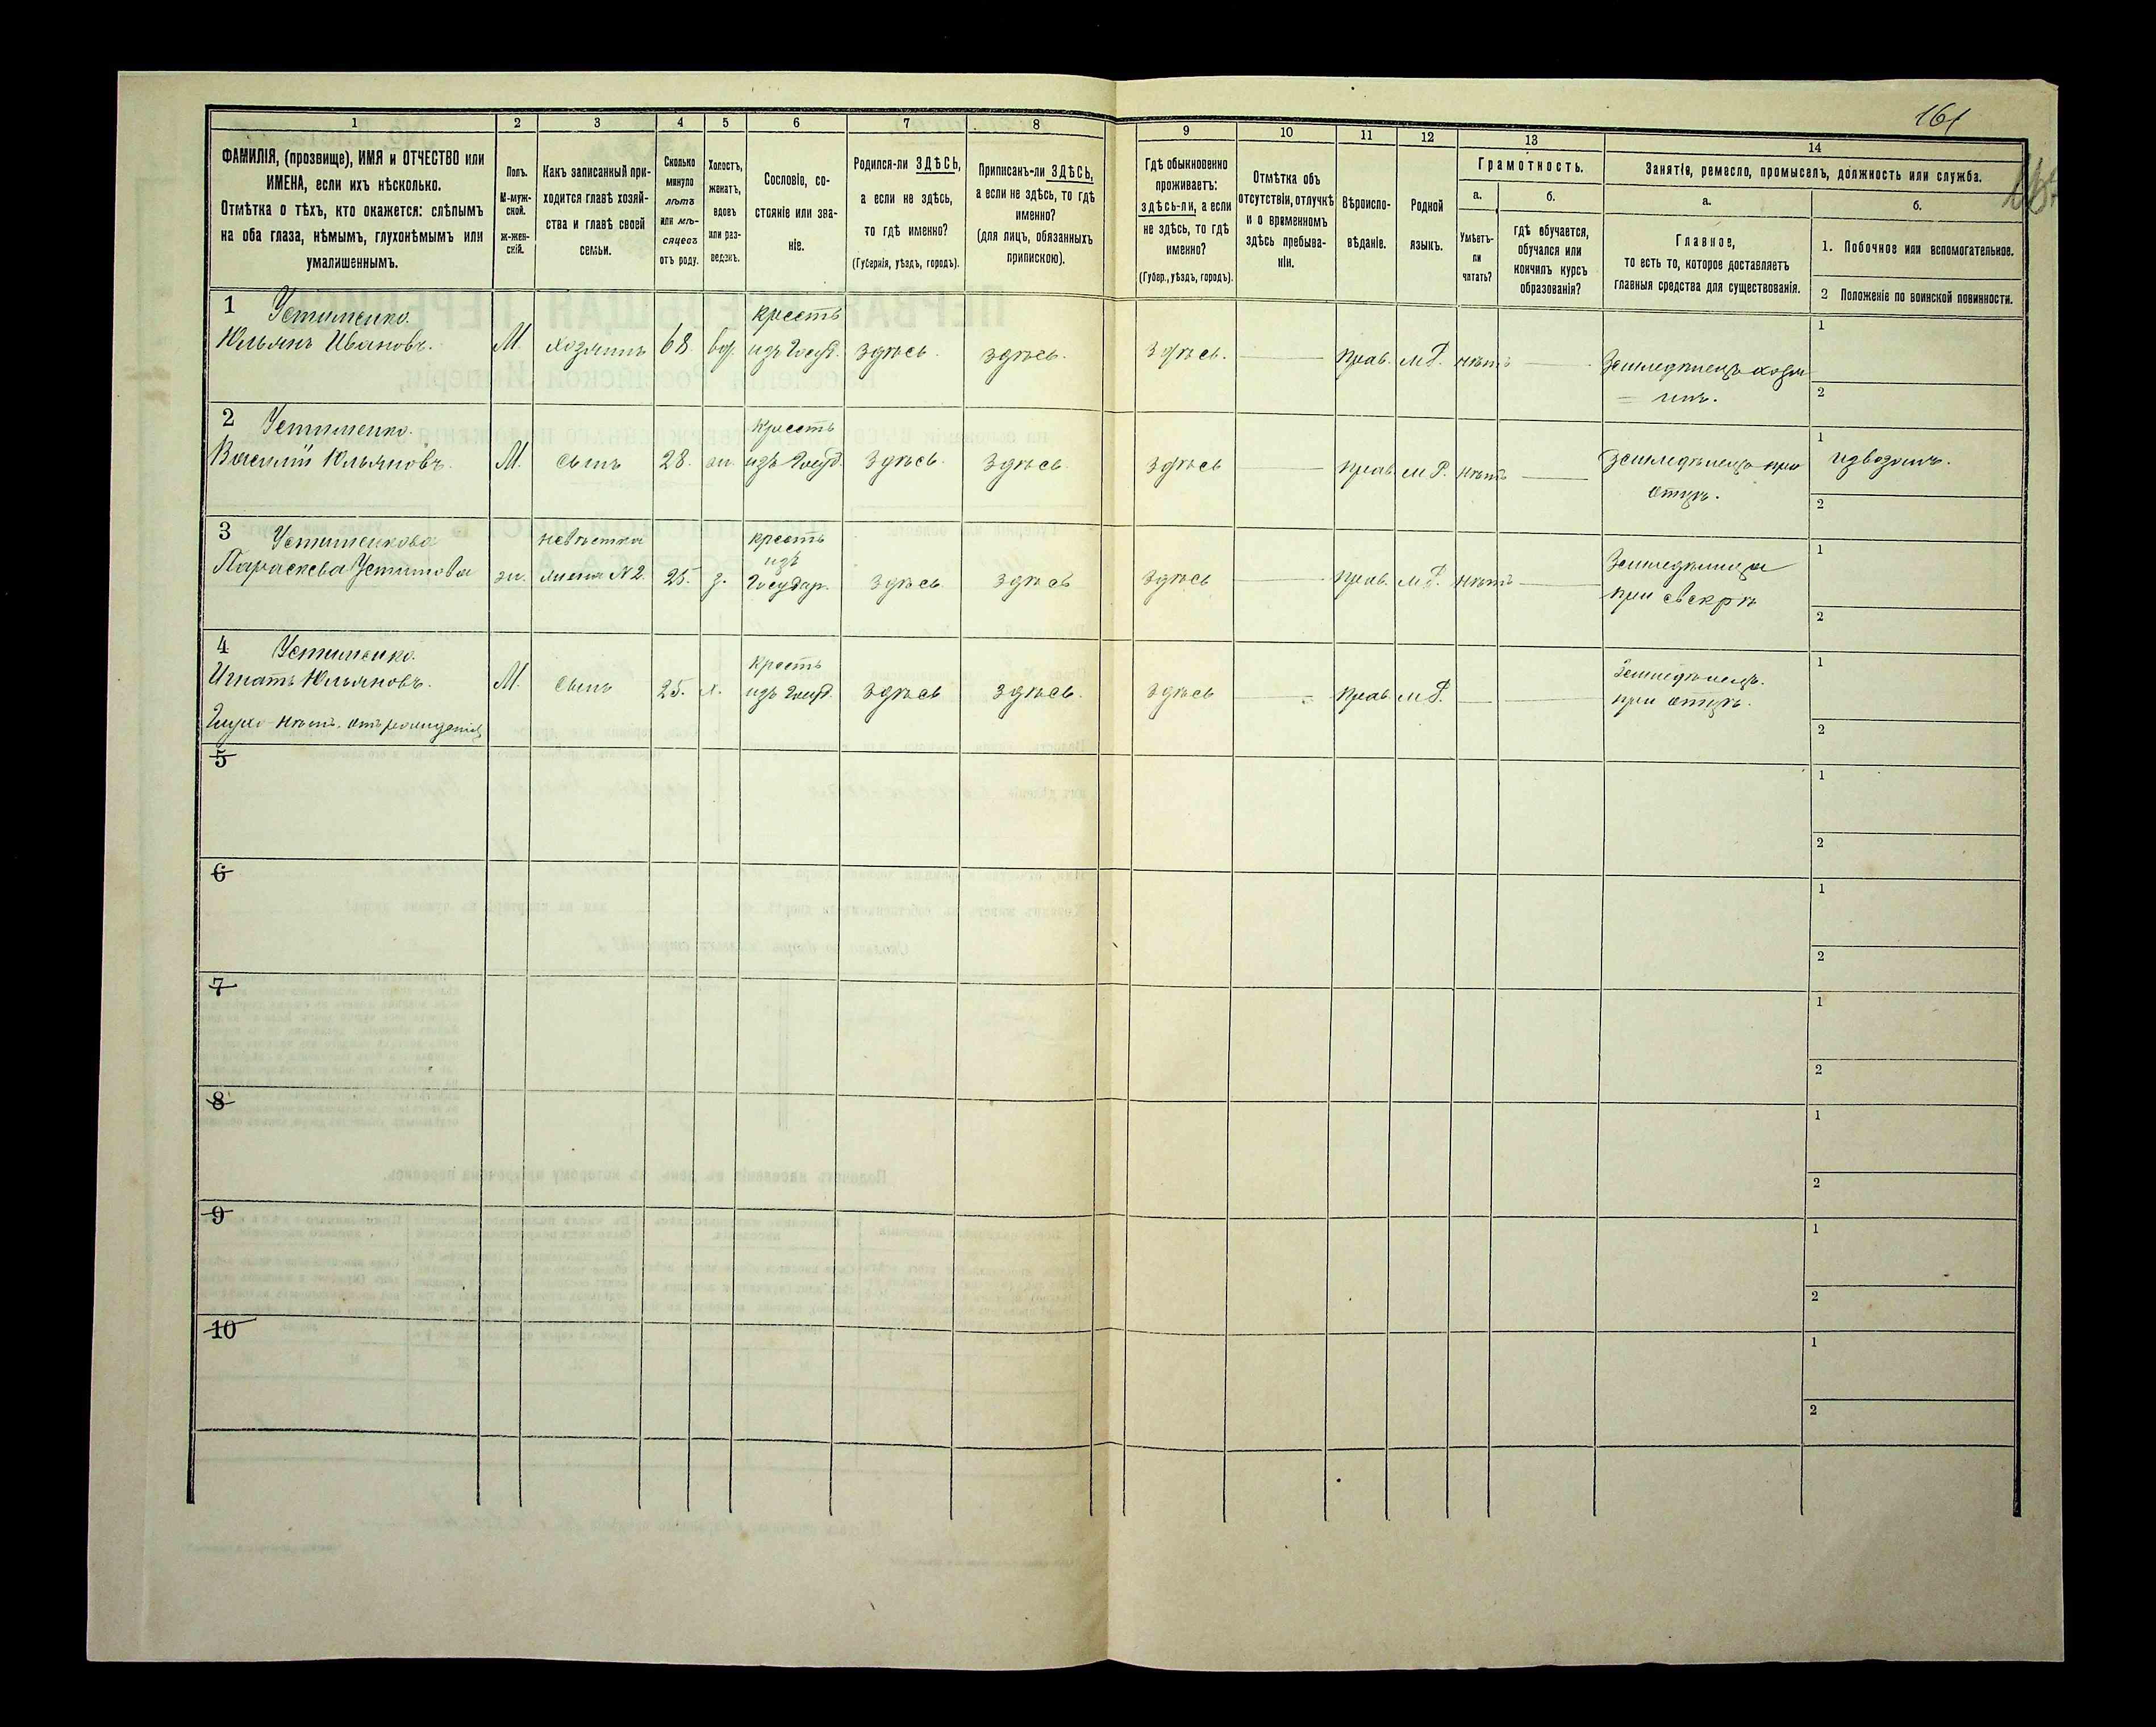 161
1
ФАМИЛІЯ, (прозвище), ИМЯ и ОТЧЕСТВО или
ИМЕНА, если ихъ нѣсколько.
Отмѣтка о тѣхъ, кто окажется: слѣпымъ
на оба глаза, нѣмымъ, глухонѣмымъ или
умалишеннымъ.
2
Полъ.
М-муж-
ской.
ж-жен-
скій.
3
Какъ записанный при-
ходится главѣ хозяй-
ства и главѣ своей
семьи.
4
Сколько
минуло
лѣтъ
или мѣ-
сяцевъ
отъ роду.
5
Холостъ,
женатъ,
вдовъ
или раз-
веденъ.
6
Сословіе, со-
стояніе или зва-
ніе.
7
Родился-ли ЗДѢСЬ,
а если не здѣсь,
то гдѣ именно?
(Губернія, уѣздъ, городъ).
8
Приписанъ-ли ЗДѢСЬ,
а если не здѣсь, то гдѣ
именно?
(для лицъ, обязанныхъ
припискою).
9
Гдѣ обыкновенно
проживаетъ:
здѣсь-ли, а если
не здѣсь, то гдѣ
именно?
(Губер., уѣздъ, городъ).
10
Отмѣтка объ
отсутствіи, отлучкѣ
и о временномъ
здѣсь пребыва-
ніи.
11
Вѣроиспо-
вѣданіе.
12
Родной
языкъ.
13
Грамотность.
а.
Умѣетъ-
ли
читать?
б.
гдѣ обучается,
обучался или
кончилъ курсъ
образованія?
14
Занятіе, ремесло, промыселъ, должность или служба.
а.
Главное,
то есть то, которое доставляетъ
главныя средства для существованія.
б.
1. Побочное или вспомогательное.
2 Положеніе по воинской повинности.
1 Устименко.
Юльянъ Ивановъ.
М.
хозяинъ
68
вд.
крестъ
изъ Госуд.
здѣсь.
здѣсь.
здѣсь.
прав.
м Р.
нѣтъ
Земледѣлецъ хозя
= инъ.
1
2
2 Устименко.
Василій Юльяновъ.
М.
сынъ
28.
ж.
Крестъ
изъ Госуд.
здѣсь.
здѣсь.
здѣсь
прав.
м Р.
нѣтъ
Земледѣлецъ при
отцѣ.
1
извозомъ.
2
3 Устименкова
Параскева Устимова
ж.
невѣстка
жена №2.
25.
з.
крестъ
изъ
Государ.
здѣсь
здѣсь
здѣсь
прав.
м Р.
нѣтъ
Земледѣлица
при свекрѣ
1
2
4 Устименко.
Игнатъ Юльяновъ.
Глухо-нѣмъ. отъ рожденія
М.
сынъ
25.
х.
Крестъ
изъ Госуд.
здѣсь
здѣсь.
здѣсь
прав.
м Р.
Земледѣлецъ.
при отцѣ.
1
2
5
1
2
6
1
2
7
1
2
8
1
2
9
1
2
10
1
2